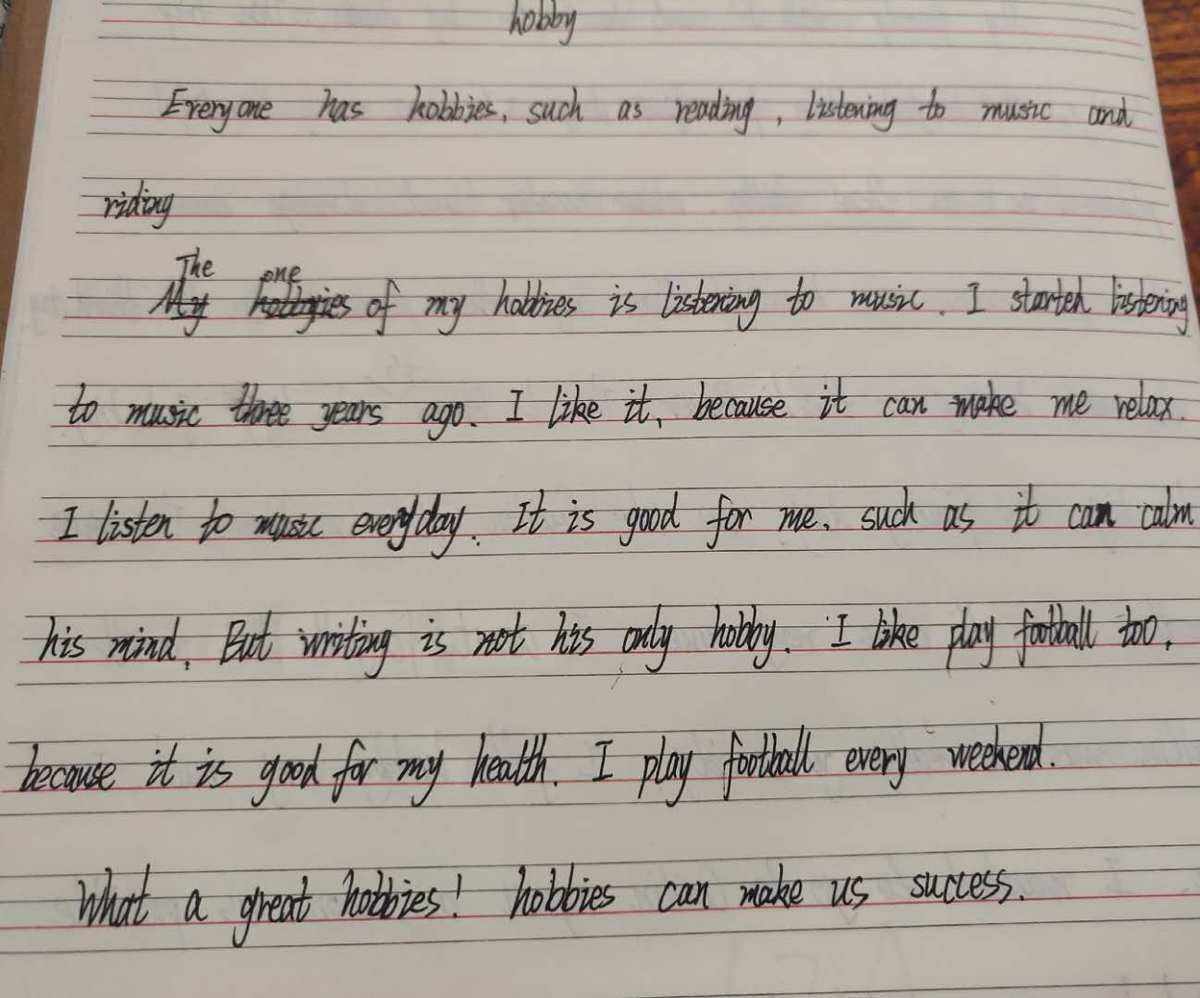 hobby
Everyone has hobbies, such as reading, listening to music and
riding
The one
My hobbies of my hobbies is listening to music. I started listening
to music three years ago. I like it, because it can make me relax.
I listen to music everyday. It is good for me, such as it can calm
his mind. But writing is not his only hobby. I like play football too,
because it is good for my health. I play football every weekend.
What a great hobbies! hobbies can make us success.